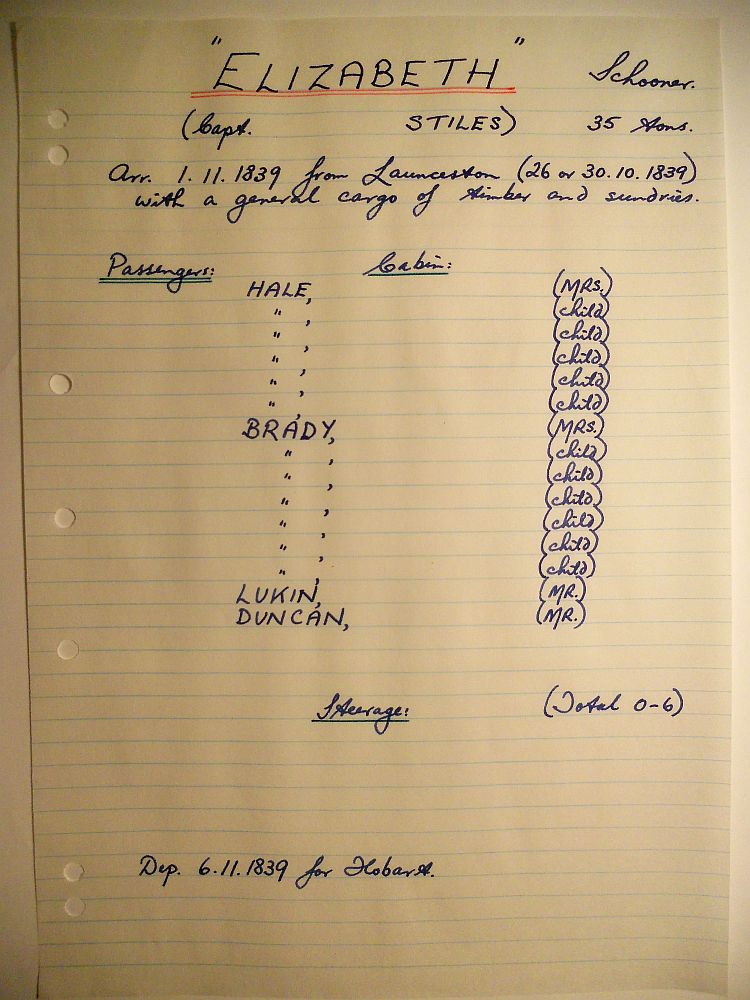 "ELIZABETH" Schooner.
(Capt. STILES) 35 tons.
Arr. 1.11.1839 from Launceston (26 or 30.10.1839)
with a general cargo of timber and sundries.
Passengers: Cabin:
HALE, (MRS.)
" , (child)
" , (child)
" , (child)
" , (child)
" , (child)
BRADY, (MRS.)
" , (child)
" , (child)
" , (child)
" , (child)
" , (child)
" , (child)
LUKIN, (MR.)
DUNCAN, (MR.)
Steerage: (Total 0-6)
Dep. 6.11.1839 for Hobart.